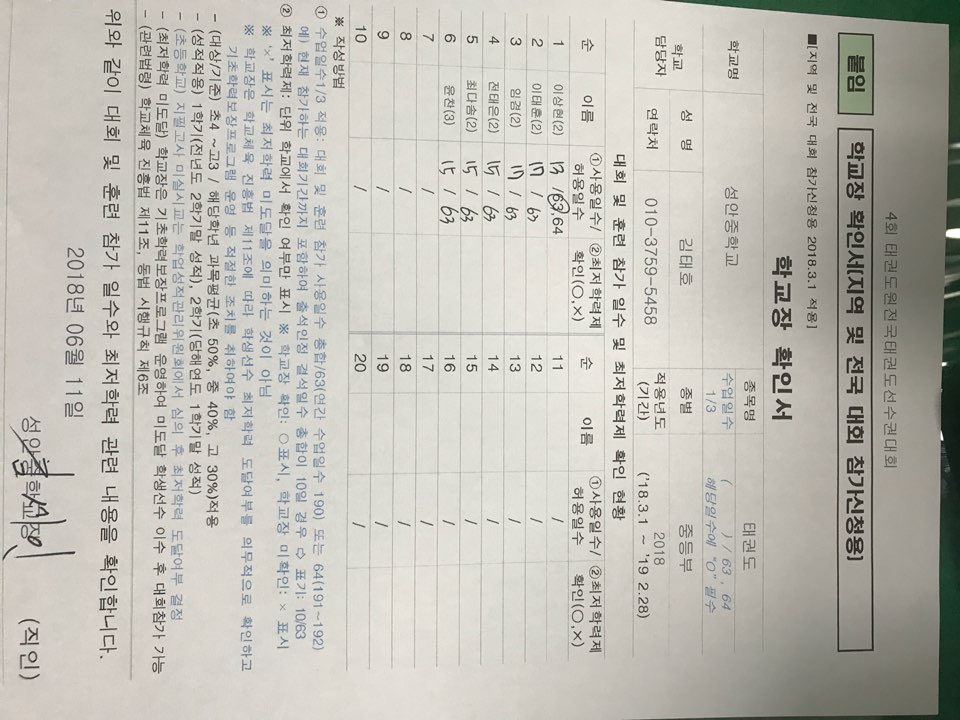 4회 태권도원전국태권도선수권대회
붙임
학교장 확인서[지역 및 전국 대회 참가신청용]
■[지역 및 전국 대회 참가신청용 2018.3.1 적용]
학교장 확인서
학교명 성안중학교 종목명 태권도
수업일수 1/3 ( ) / 63 , 64
해당일수에 "O" 필수
학교 담당자 성 명 김태호 종별 중등부
연락처 010-3759-5458 적용년도 (기간) 2018
('18.3.1 ~ '19 2.28)
대회 및 훈련 참가 일수 및 최저학력제 확인 현황
순 이름 ①사용일수/허용일수 ②최저학력제 확인(○,×) 순 이름 ①사용일수/허용일수 ②최저학력제 확인(○,×)
1 이상현(2) 13 /63,64 11 /
2 이태훈(2) 17 / 63 12 /
3 임겸(2) 17 / 63 13 /
4 전태은(2) 15 / 63 14 /
5 최다솜(2) 15 / 63 15 /
6 윤찬(3) 15 / 63 16 /
7 / 17 /
8 / 18 /
9 / 19 /
10 / 20 /
※ 작성방법
① 수업일수1/3 적용: 대회 및 훈련 참가 사용일수 총합/63(연간 수업일수 190) 또는 64(191~192)
예) 현재 참가하는 대회기간까지 포함하여 출석인정 결석일수 총합이 10일 경우 ⇨ 표기: 10/63
② 최저학력제: 단위 학교에서 확인 여부만 표시 ※ 학교장 확인: ○표시, 학교장 미확인: × 표시
※ '×' 표시는 최저학력 미도달을 의미하는 것이 아님
※ 학교장은 학교체육 진흥법 제11조에 따라 학생선수 최저학력 도달여부를 의무적으로 확인하고
기초학력보장프로그램 운영 등 적절한 조치를 취하여야 함
- (대상/기준) 초4 ~고3 / 해당학년 과목평균(초 50%, 중 40%, 고 30%)적용
- (성적적용) 1학기(전년도 2학기말 성적), 2학기(당해년도 1학기말 성적)
- (초등학교) 지필고사 미실시교는 학업성적관리위원회에서 심의 후 최저학력 도달여부 결정
- (최저학력 미도달) 학교장은 기초학력보장프로그램 운영하여 미도달 학생선수 이수 후 대회참가 가능
- (관련법령) 학교체육 진흥법 제11조, 동법 시행규칙 제6조
위와 같이 대회 및 훈련 참가 일수와 최저학력 관련 내용을 확인합니다.
2018년 06월 11일
성안중학교장 (직인)